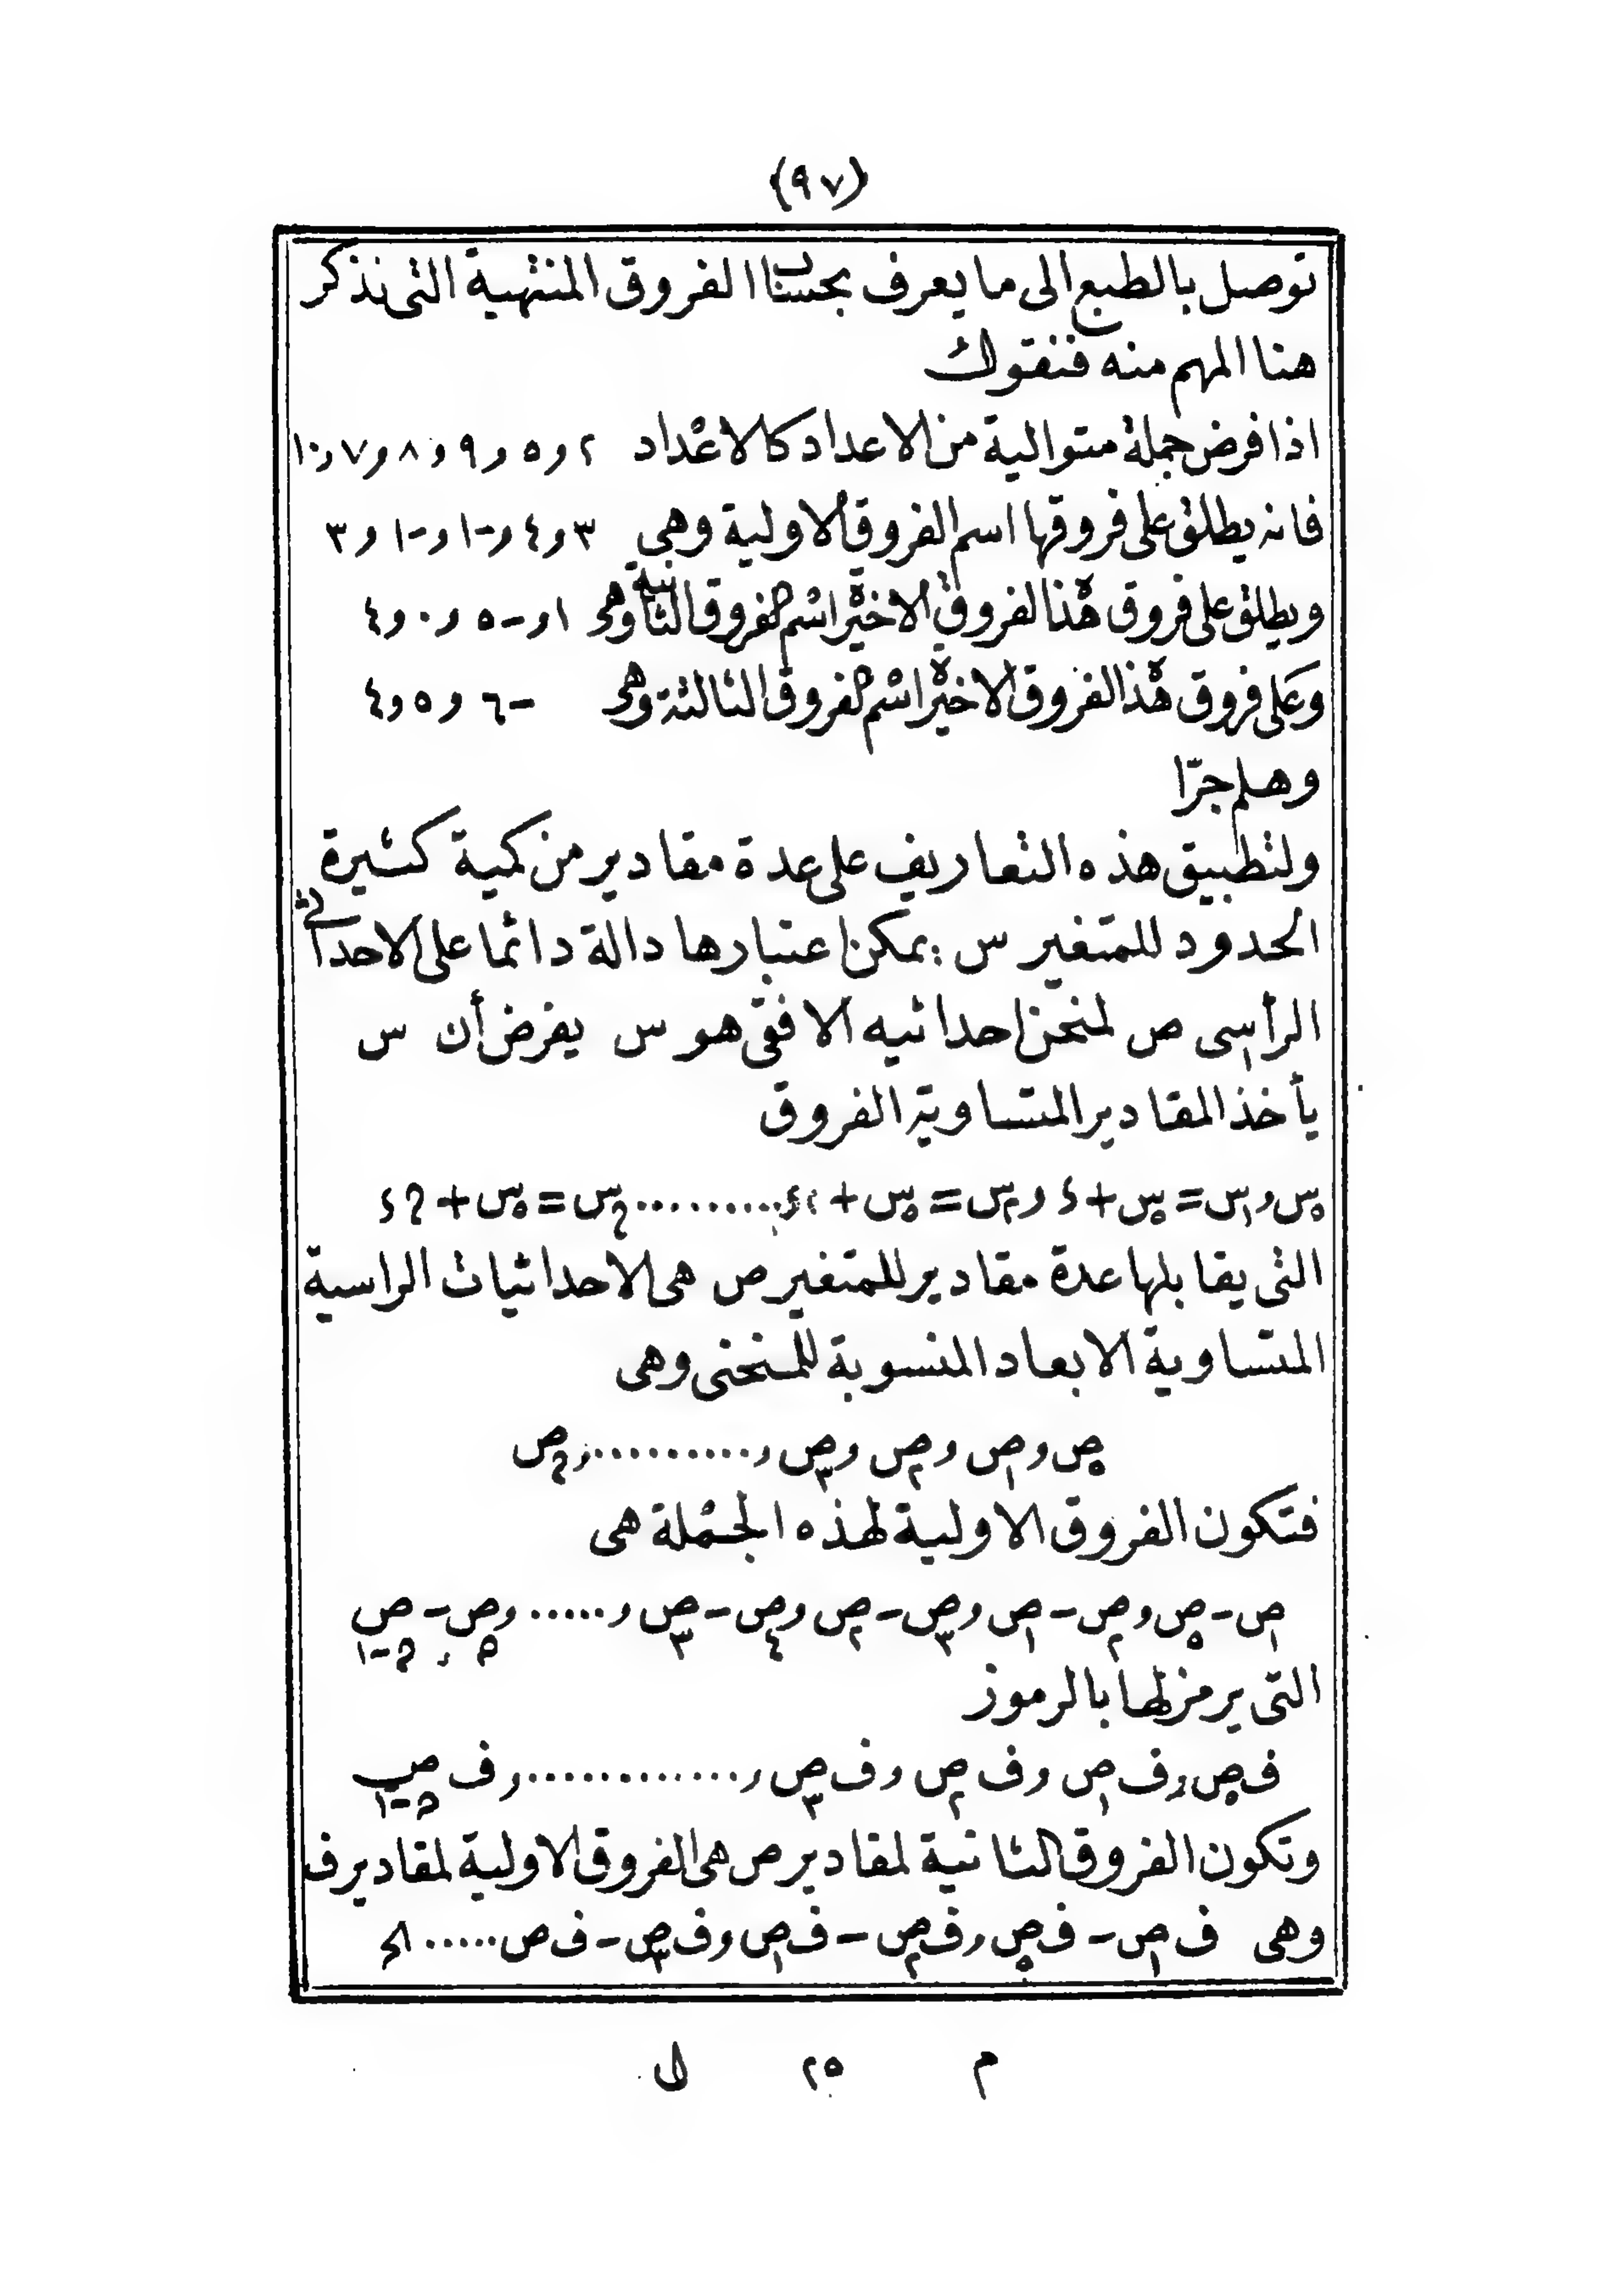 (٩٧)
توصل بالطبع الى ما يعرف بحساب الفروق المنتهية التى نذكر
هنا المهم منه فنقول
اذا فرض جملة متوالية من الاعداد كالاعداد ٢ و ٥ و ٩ و ٨ و ٧ و ١٠
فانه يطلق على فروقها اسم الفروق الاولية وهي ٣ و ٤ و -١ و -١ و ٣
ويطلق على فروق هذه الفروق الاخيرة اسم الفروق الثانية وهى ١ و -٥ و ٠ و ٤
وعلى فروق هذه الفروق الاخيرة اسم الفروق الثالثة وهى -٦ و ٥ و ٤
وهلم جرّا
ولتطبيق هذه التعاريف على عدة مقادير من كمية كثيرة
الحدود للمتغير س يمكن اعتبارها دالة دائما على الاحداثى
الرأسى ص لمنحن احداثيه الافقى هو س يفرض أن س
يأخذ المقادير المتساوية الفروق
س٠ و س١ = س٠ + ء و س٢ = س٠ + ٢ء ......... س‌م = س٠ + م ء
التى يقابلها عدة مقادير للمتغير ص هى الاحداثيات الراسية
المتساوية الابعاد المنسوبة للمنحنى وهى
ص٠ و ص١ و ص٢ و ص٣ و .......... و ص‌م
فتكون الفروق الاولية لهذه الجملة هى
ص١ - ص٠ و ص٢ - ص١ و ص٣ - ص٢ و ص٤ - ص٣ و ..... و ص‌م - ص‌م-١
التى يرمز لها بالرموز
ف ص٠ و ف ص١ و ف ص٢ و ف ص٣ و ............ و ف ص‌م-١
وتكون الفروق الثانية لمقادير ص هى الفروق الاولية لمقادير ف
وهى ف ص١ - ف ص٠ و ف ص٢ - ف ص١ و ف ص٣ - ف ص ..... الخ
م ٢٥ ل